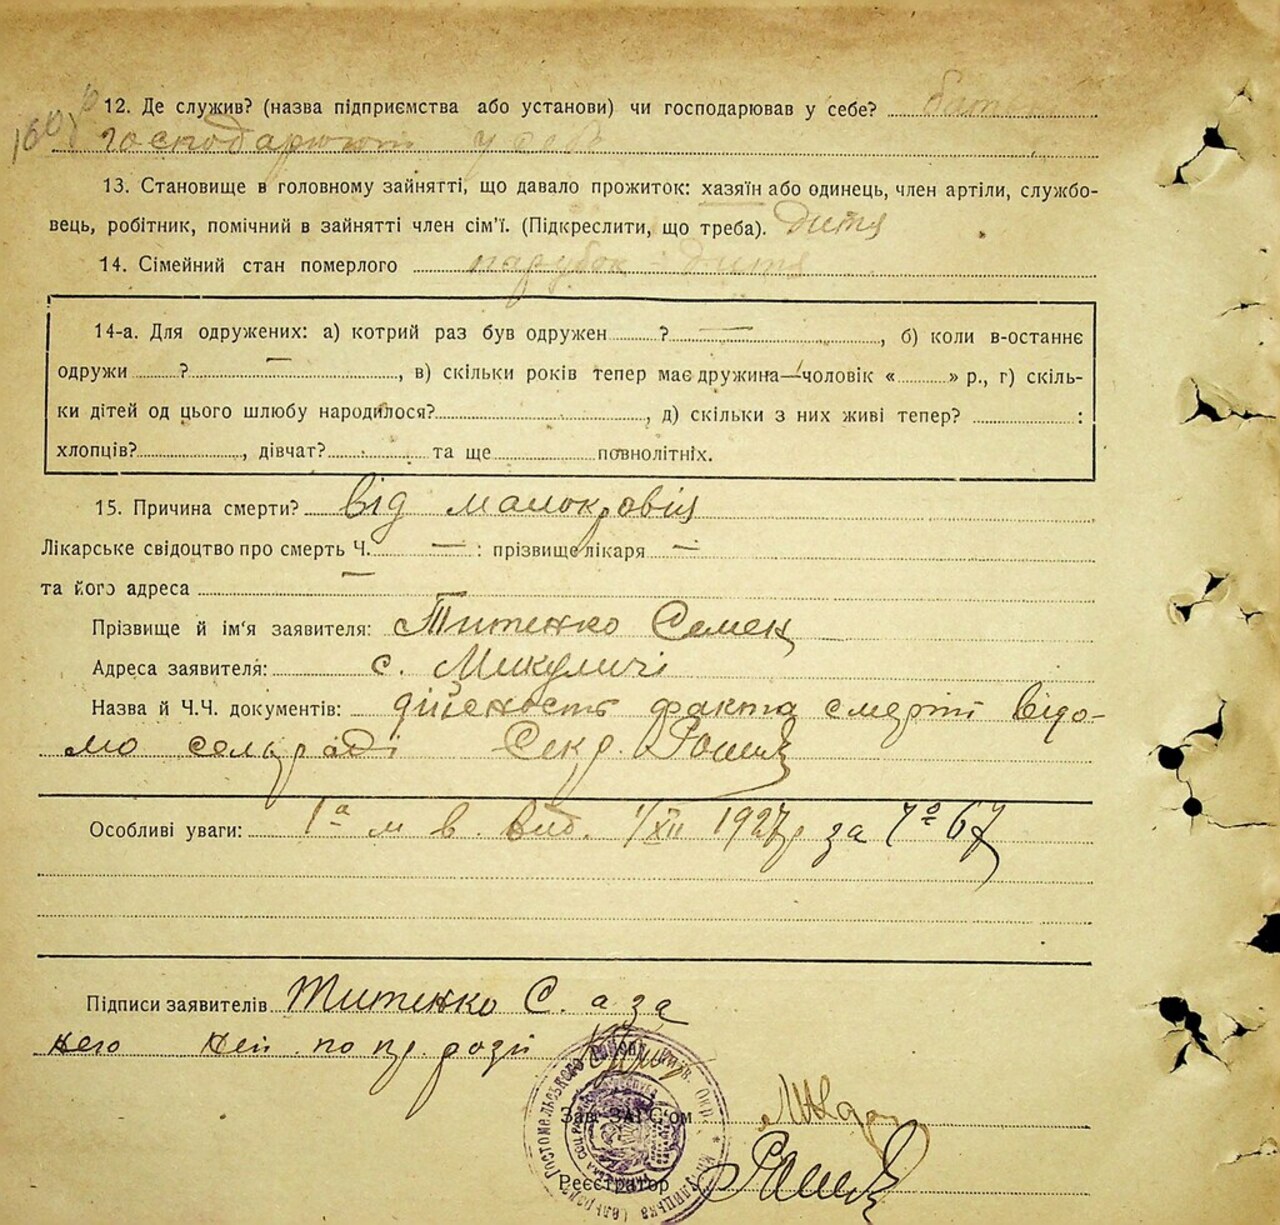 12. Де служив? (назва підприємства або установи) чи господарював у себе? батьки
господарюют у себе
13. Становище в головному зайнятті, що давало прожиток: хазяїн або одинець, член артіли, службо-
вець, робітник, помічний в зайнятті член сім'ї. (Підкреслити, що треба). Дитя
14. Сімейний стан померлого парубок - дитя
14-а. Для одружених: а) котрий раз був одружен ? —, б) коли в-останнє
одружи ? —, в) скільки років тепер має дружина—чоловік « » р., г) скіль-
ки дітей од цього шлюбу народилося? , д) скільки з них живі тепер? :
хлопців? , дівчат? та ще повнолітніх.
15. Причина смерти? від малокровія
Лікарське свідоцтво про смерть Ч. — : прізвище лікаря —
та його адреса —
Прізвище й ім'я заявителя: Титенко Семен
Адреса заявителя: с. Микуличі
Назва й Ч.Ч. документів: дійсность факта смерті відо-
мо сельраді Секр.
Особливі уваги: 1а м в. вид. 1/XII 1927 р за № 67
Підписи заявителів Титенко С. а за
него
Зав. ЗАГС'ом
Реєстратор